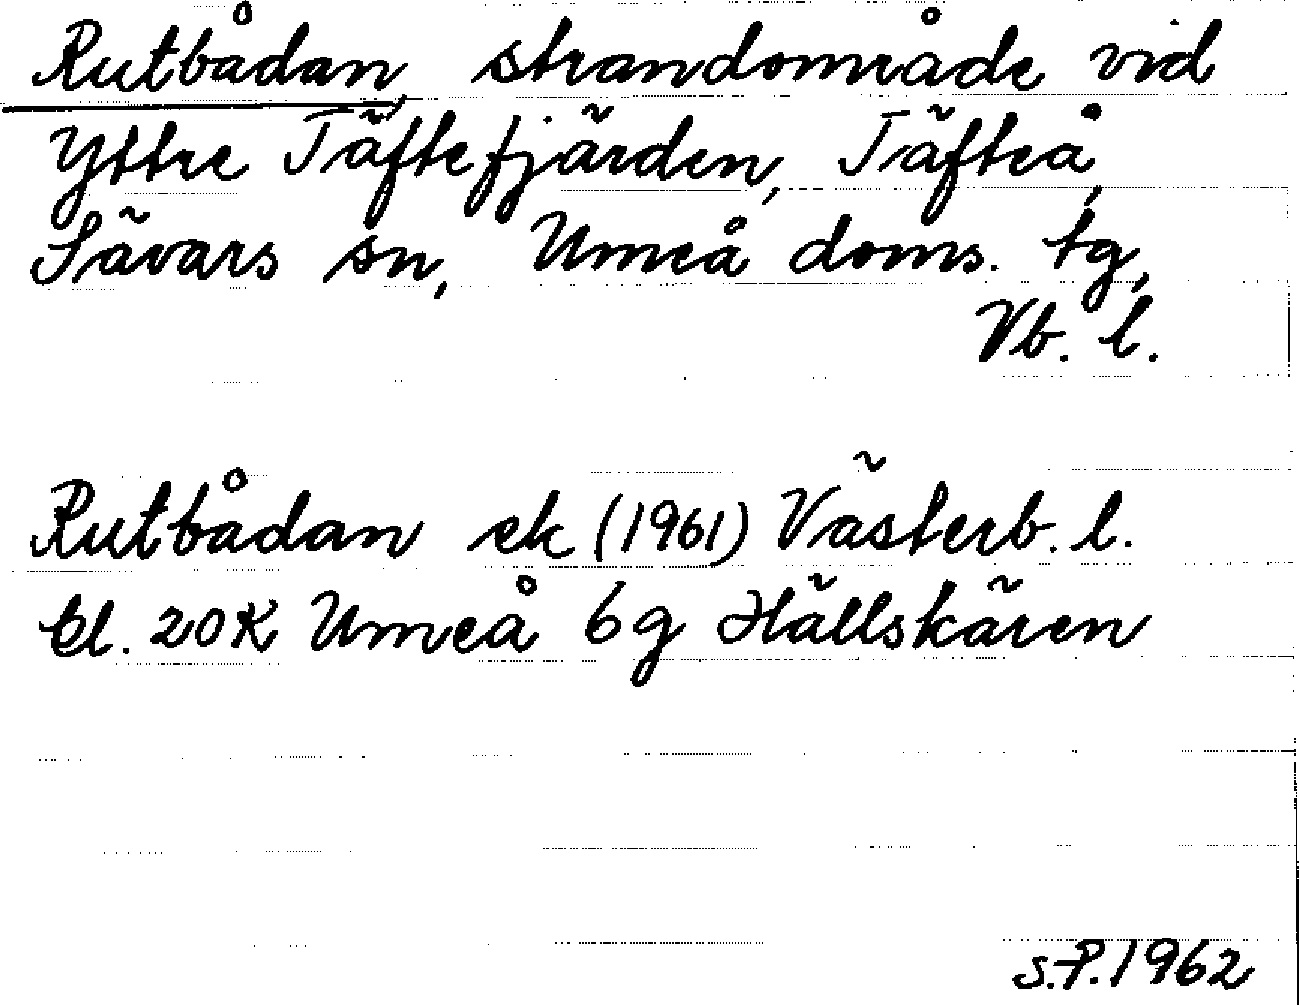 Rutbådan, strandområde vid
Yttre Täftefjärden, Täfteå,
Sävars sn, Umeå doms. tg,
Vb. l.
Rutbådan ek (1961) Västerb. l.
Bl. 20K Umeå 6g Hällskären
S.P. 1962